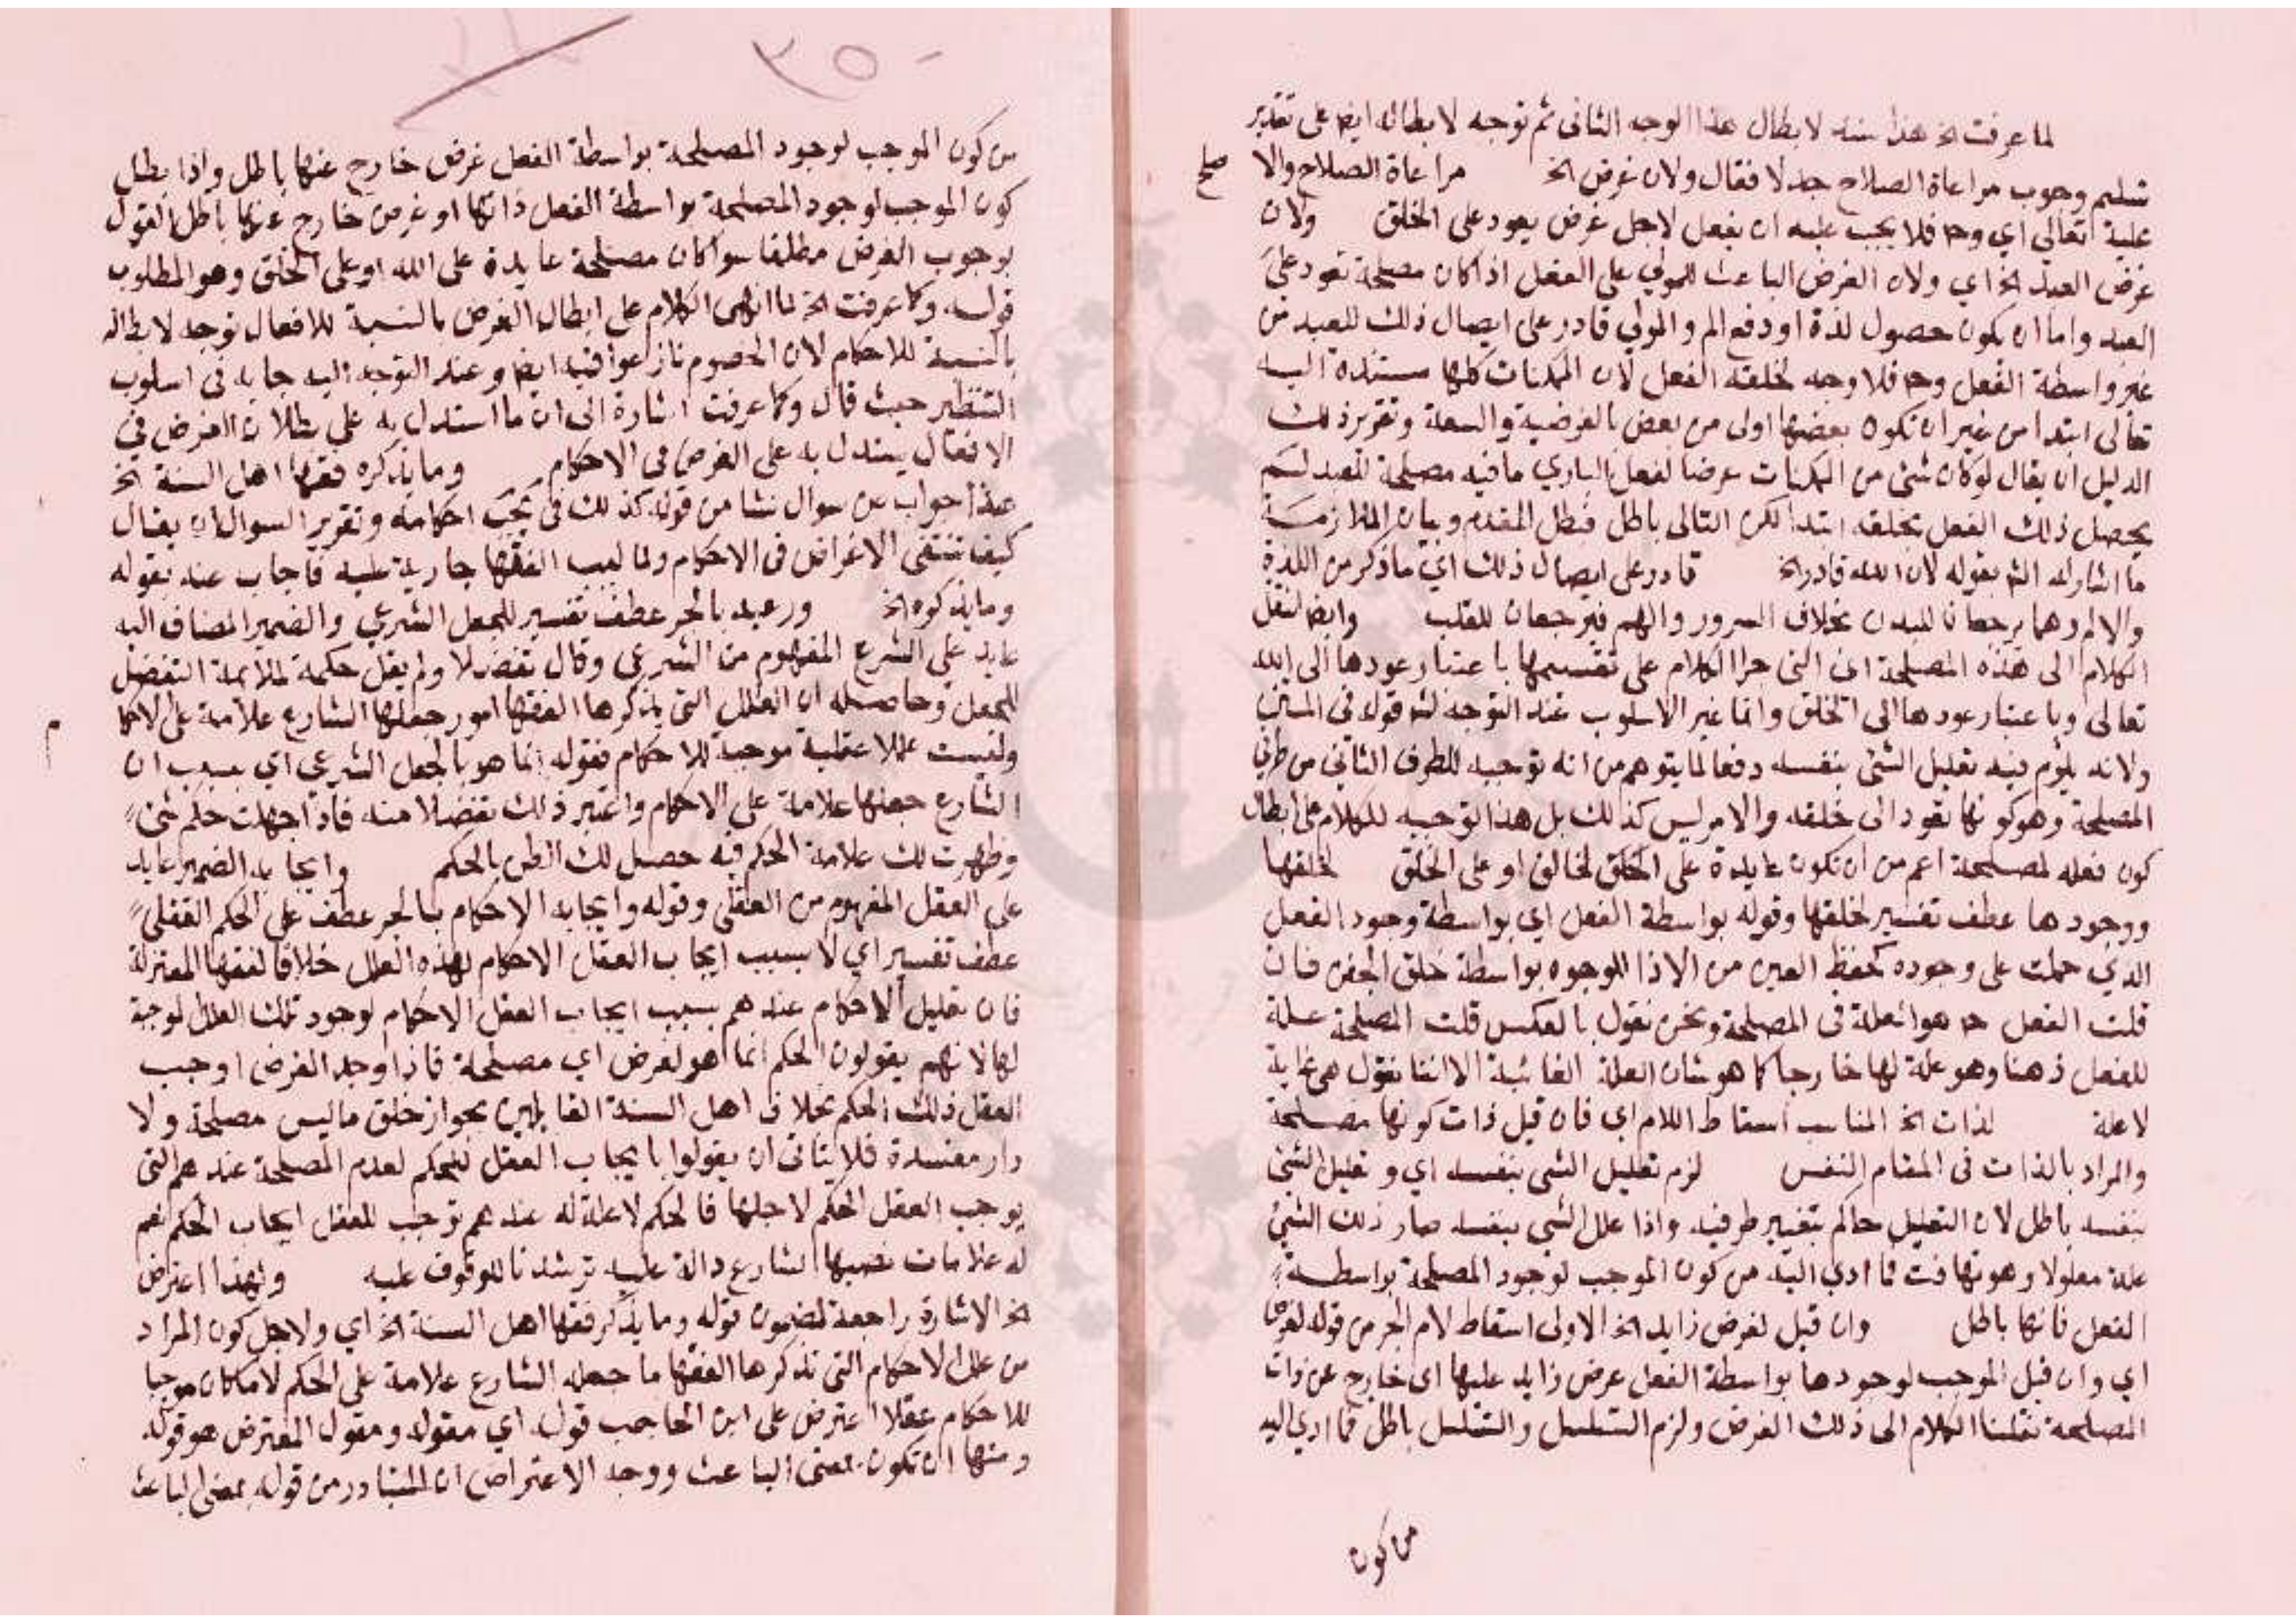 لما عرفت الخ هذا سند لابطال هذا الوجه الثانى ثم توجه لابطاله ايضا على تقدير
تسليم وجوب مراعاة الصلاح جدلا فقال ولان غرض الخ مراعاة الصلاح والا صلح
عليه تعالي اي وح فلا يجب عليه ان يفعل لاجل غرض يعود على الخلق ولان
غرض العبد الخ اي ولان الغرض الباعث للمولي على الفعل اذا كان مصلحة تعود على
العبد واما ان يكون حصول لذة او دفع الم والمولي قادر على ايصال ذلك للعبد من
غير واسطة الفعل وح فلا وجه لخلقه الفعل لان الممكنات كلها مستندة اليه
تعالى ابتدا من غير ان تكون بعضها اولى من بعض بالغرضية والسعة وتقرير ذلك
الدليل ان يقال لو كان شئ من الممكنات غرضا لفعل البارى ما فيه مصلحة للعبد لم
يحصل ذلك الفعل بخلقه ابتدا لكن التالى باطل فبطل المقدم وبيان الملازمة
ما اشار له الشم بقوله لان الله قادر الخ قادر على ايصال ذلك اي ما ذكر من اللذة
والالم وهما يرجعان للبدن بخلاف السرور والهم فيرجعان للقلب وايضا لنقل
الكلام الى هذه المصلحة اي التى جرا الكلام على تقسيمها باعتبار عودها الى الله
تعالى وباعتبار عودها الى الخلق وانما غير الاسلوب عند التوجه لشم قوله فى المتن
ولانه يلزم فيه تعليل الشئ بنفسه دفعا لما يتوهم من انه توجيه للطرف الثاني من طرفي
المصلحة وهو كونها تعود الى خلقه والامر ليس كذلك بل هذا توجيه للكلام على ابطال
كون فعله لمصلحة اعم من ان تكون عايدة على الخالق او على الخلق لخلقها
ووجودها عطف تفسير لخلقها وقوله بواسطة الفعل اي بواسطة وجود الفعل
الذي حملت على وجوده كحفظ العين من الاذا الموجود بواسطة خلق الجفن فان
قلت الفعل ح هو العلة فى المصلحة ونحن نقول بالعكس قلت المصلحة علة
للفعل ذهنا وهو علة لها خارجا كما هو شان العلة الغائية الا اننا نقول هى غاية
لا علة لذات الخ المناسب اسقاط اللام اي فان قيل ذات كونها مصلحة
والمراد بالذات فى المقام النفس لزم تعليل الشى بنفسه اي وتعليل الشئ
بنفسه باطل لان التعليل حاكم بتغير طرفيه واذا علل الشى بنفسه صار ذلك الشئ
علة معلولا وهو تهافت فما ادي اليه من كون الموجب لوجود المصلحة بواسطة
الفعل ذاتها باطل وان قيل لغرض زايد الخ الاولى اسقاط لام الجر من قوله لغرض
اي وان قيل الموجب لوجودها بواسطة الفعل غرض زايد عليها اى خارج عن ذات
المصلحة نقلنا الكلام الى ذلك الغرض ولزم التسلسل والتسلسل باطل فما ادي اليه
من كون
٣٥٠
من كون الموجب لوجود المصلحة بواسطة الفعل غرض خارج عنها باطل واذا بطل
كون الموجب لوجود المصلحة بواسطة الفعل ذاتها او غرض خارج عنها باطل القول
بوجوب الغرض مطلقا سوا كان مصلحة عايدة على الله او على الخلق وهو المطلوب
قوله وكما عرفت الخ لما انهى الكلام على ابطال الغرض بالنسبة للافعال توجه لابطاله
بالنسبة للاحكام لان الخصوم نازعوا فيه ايضا وعند التوجه اليه جا به فى اسلوب
التنظير حيث قال وكما عرفت اشارة الى ان ما استدل به على بطلان الغرض في
الافعال يستدل به على الغرض فى الاحكام وما يذكره فقها اهل السنة الخ
هذا جواب عن سوال نشا من قوله كذلك فى احكامه وتقرير السوال ان يقال
كيف تنتفى الاغراض فى الاحكام الفقها جارية عليه فاجاب عنه بقوله
وما يذكره الخ ورعيه بالجر عطف تفسير للجعل الشرعي والضمير المضاف اليه
عايد علي الشرع المفهوم من الشرعى وقال تفضلا ولم يقل حكمة لملائمة التفضل
للجعل وحاصله ان العلل التي يذكرها الفقها امور جعلها الشارع علامة على الاحكام
وليست عللا عقلية موجبة للاحكام فقوله انما هو بالجعل الشرعي اي بسبب ان
الشارع جعلها علامة على الاحكام واعتبر ذلك تفضلا منه فاذا جهلت حكم شئ
وظهرت لك علامة الحكم فيه حصل لك الظن بالحكم وايجابه الضمير عايد
على العقل المفهوم من العقلى وقوله وايجابه الاحكام بالجر عطف على الحكم العقلى
عطف تفسير اي لا بسبب ايجاب العقل الاحكام لهذه العلل خلافا لفقها المعتزلة
فان تعليل الاحكام عندهم بسبب ايجاب العقل الاحكام لوجود تلك العلل الموجبة
لها لانهم يقولون الحكم انما هو لغرض اي مصلحة فاذا وجد الغرض اوجب
العقل ذلك الحكم بخلاف اهل السنة القايلين بجواز خلق ما ليس مصلحة ولا
دار مفسدة فلا يتاتى ان يقولوا بايجاب العقل للحكم لعدم المصلحة عندهم التى
يوجب العقل الحكم لاجلها فالحكم لا علة له عندهم توجب للعقل ايجاب الحكم نعم
له علامات نصبها الشارع دالة عليه ترشدنا للوقوف عليه ولهذا اعترض
الخ الاشارة راجعة لمضمون قوله وما يذكر فقها اهل السنة الخ اي ولاجل كون المراد
من علل الاحكام التى تذكرها الفقها ما جعله الشارع علامة على الحكم لا ما كان موجبا
للاحكام عقلا اعترض على ابن الحاجب قوله اي مقوله ومقول المعترض هو قوله
ومنها ان تكون بمعنى الباعث ووجه الاعتراض ان المتبادر من قوله بمعنى الباعث